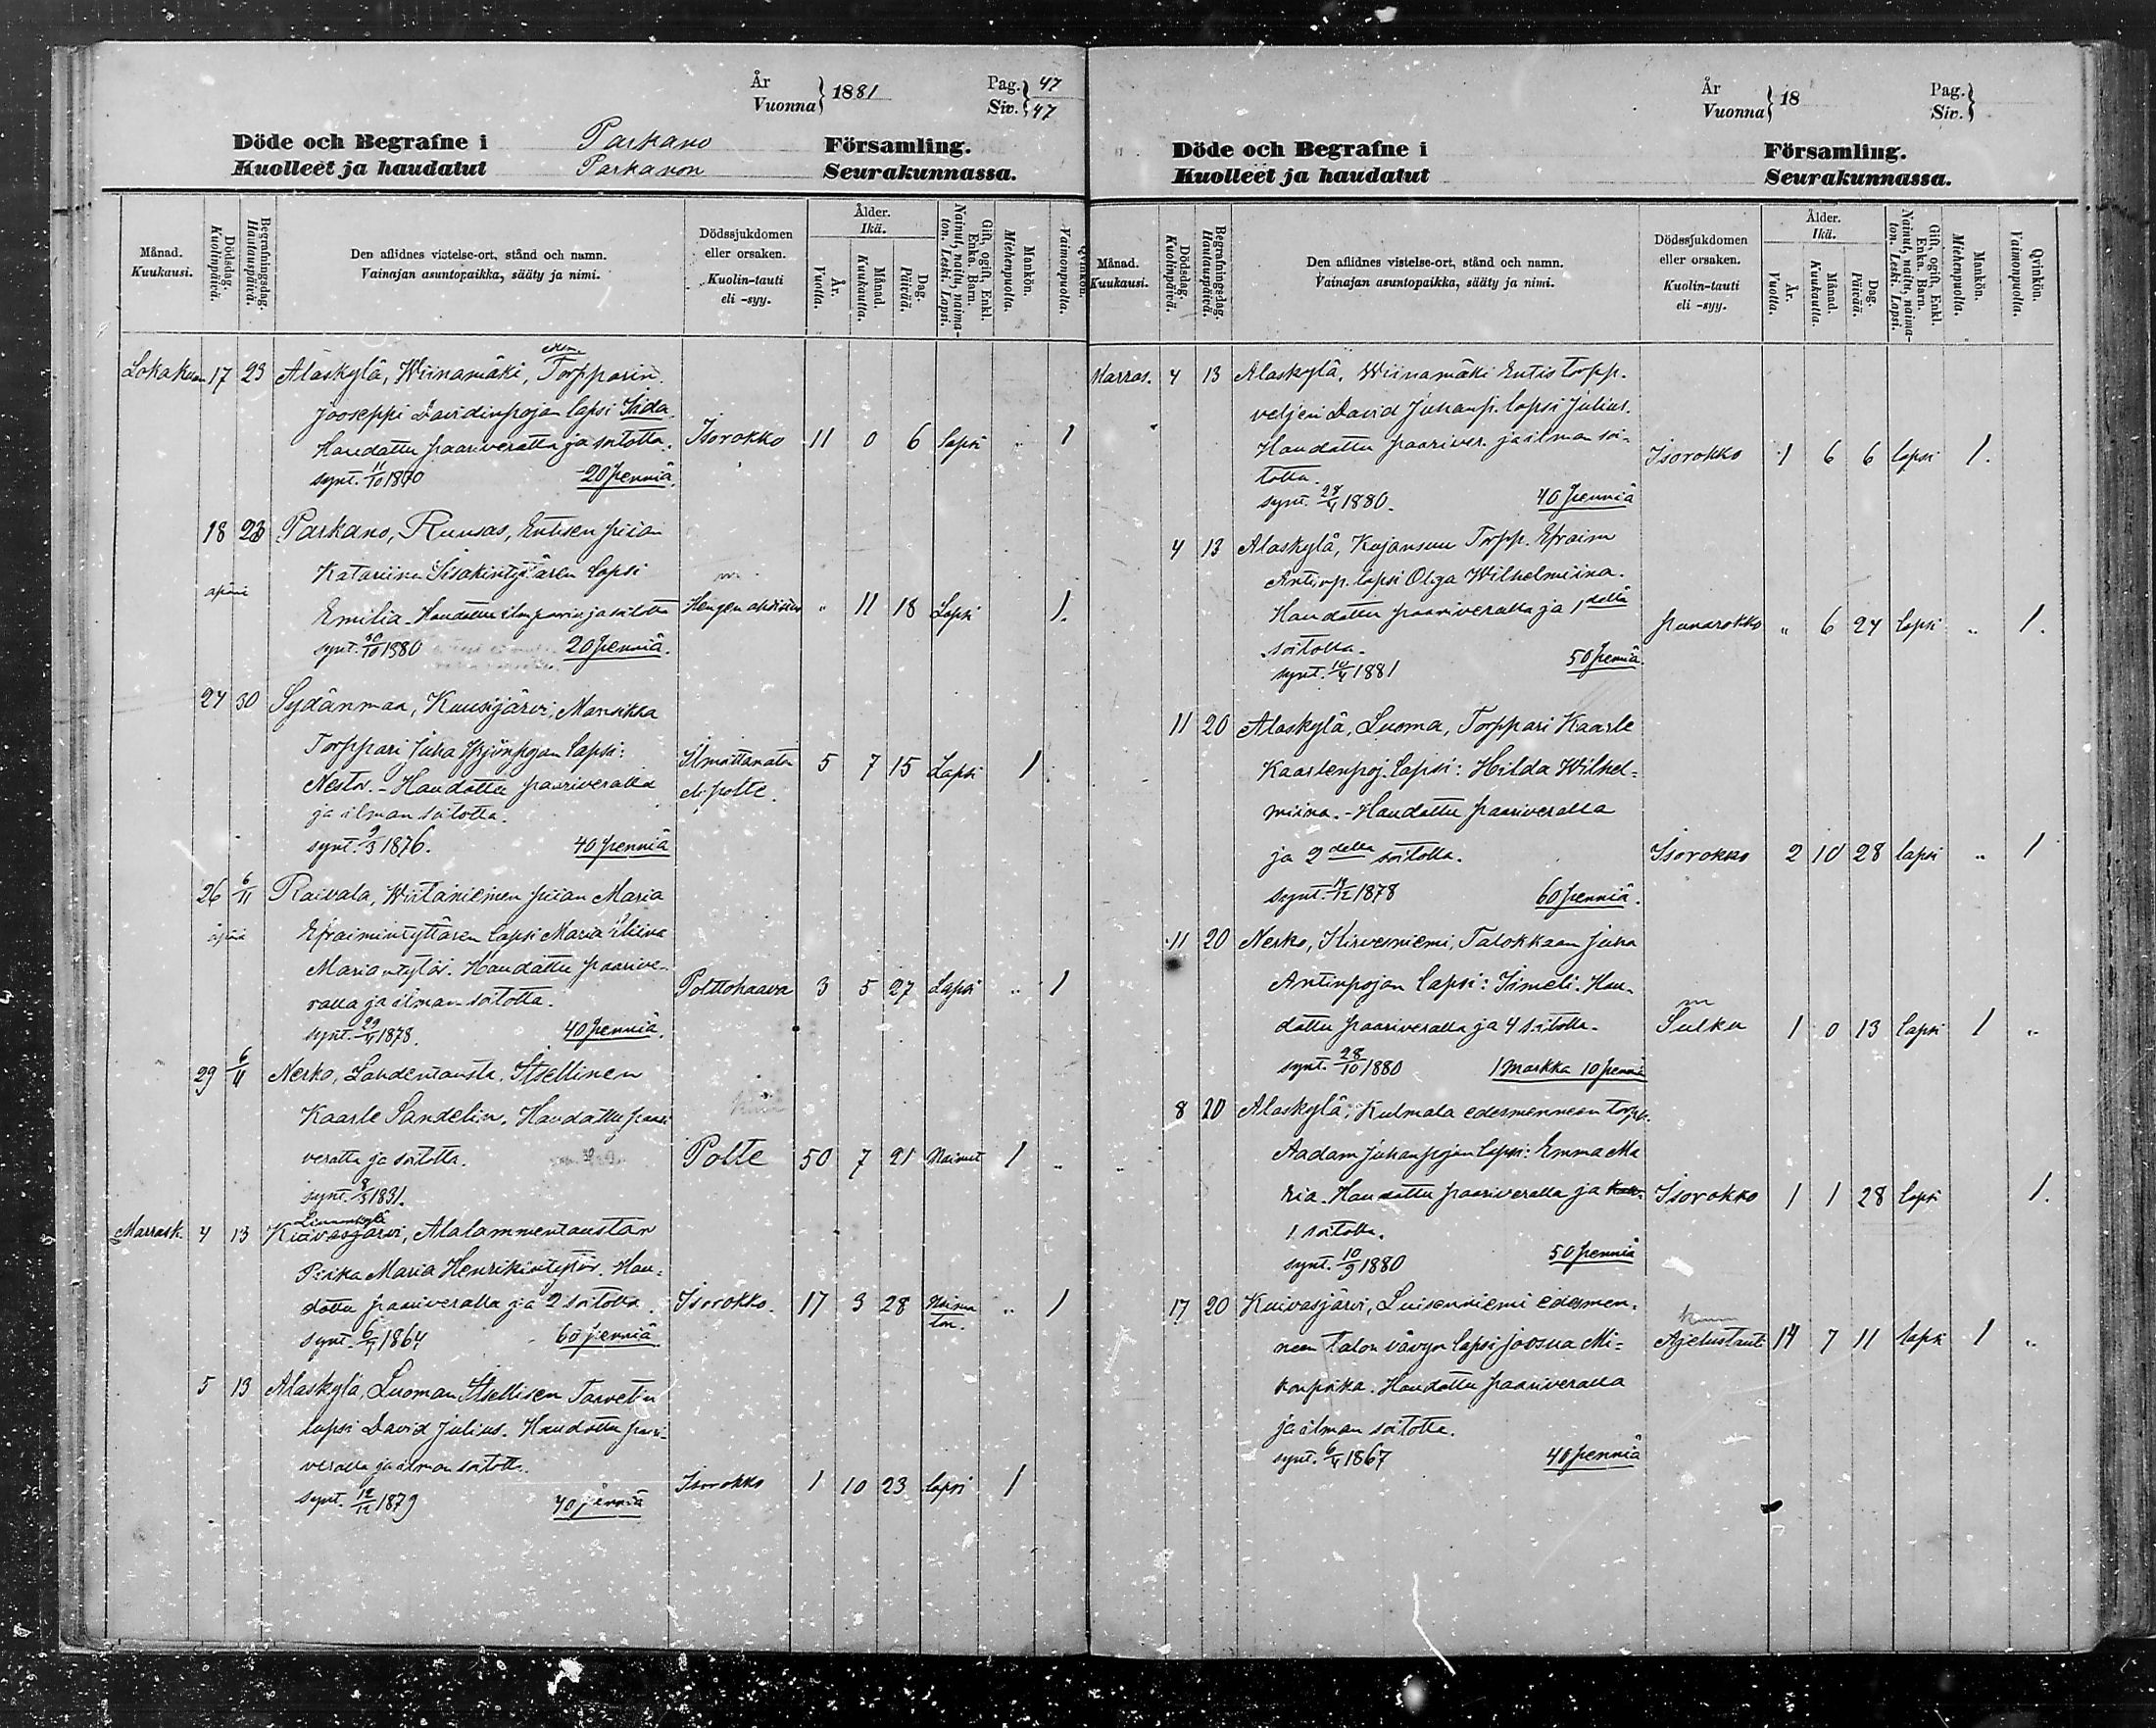 År
Vuonna } 1881
Pag. } 47
Siv. } 47
Döde och Begrafne i Parkano Församling.
Kuolleet ja haudatut Parkanon Seurakunnassa.
Månad. Kuukausi.
Dödsdag. Kuolinpäivä.
Begrafningsdag. Hautauspäivä.
Den aflidnes vistelse-ort, stånd och namn.
Vainajan asuntopaikka, sääty ja nimi.
Dödssjukdomen eller orsaken.
Kuolin-tauti eli -syy.
Ålder. Ikä.
År. Vuotta.
Månad. Kuukautta.
Dag. Päivää.
Gift, ogift, Enkl. Enka. Barn.
Nainut, naitu, naimaton. Leski. Lapsi.
Mankön. Miehenpuolta.
Qvinkön. Vaimonpuolta.
Lokakuun 17 23 Alaskylä, Wiinamäki, Torpparin
Jooseppi Davidinpojan lapsi Iida
Haudattu paariveratta ja soitotta. Isorokko 11 0 6 lapsi " 1
synt. 11/10 1870 20 penniä.
18 23 Parkano, Ruusas, Entisen piian
Katariina Iisakintyttären lapsi
äpärä
Emilia. Haudattu ilman paarin ja soitotta Hengen ahdistus " 11 18 Lapsi 1.
synt. 30/10 1880 20 penniä.
24 30 Sydänmaa, Kuusijärvi, Mansikka
Torppari Juha Yrjönpojan lapsi: Ilmoittamaton 5 7 15 Lapsi 1
Nestor. - Haudattu paariveralla eli polte.
ja ilman soitotta.
synt. 9/3 1876. 40 penniä
26 6/11 Raivala, Wiitaniemen piian Maria
äpärä Efraimintyttären lapsi Maria Miina
Mariantytär. Haudattu paarive-
ralla ja ilman soitotta. Polttohaava 3 5 27 Lapsi " 1
synt. 29/4 1878. 40 penniä.
29 6/11 Nerko, Lahdentausta, Itsellinen
Kaarle Sandelin. Haudattu paari
veratta ja soitotta. Polte 50 7 21 Nainut 1 "
synt. 8/3 1831.
Linnankylä
Marrask. 4 13 Kuivasjärvi, Alalammentaustan
Piika Maria Henrikintytär. Hau-
dattu paariveralla ja 2 soitolla. Isorokko. 17 3 28 Naima ton. " 1
synt. 6/7 1864 60 penniä
5 13 Alaskylä, Luoman Itsellisen Taavetin
lapsi David Julius. Haudattu paari-
veralla ja ilman soitott. Isorokko 1 10 23 lapsi 1
synt. 12/12 1879 40 penniä
År
Vuonna } 18
Pag.
Siv. }
Döde och Begrafne i Församling.
Kuolleet ja haudatut Seurakunnassa.
Månad. Kuukausi.
Dödsdag. Kuolinpäivä.
Begrafningsdag. Hautauspäivä.
Den aflidnes vistelse-ort, stånd och namn.
Vainajan asuntopaikka, sääty ja nimi.
Dödssjukdomen eller orsaken.
Kuolin-tauti eli -syy.
Ålder. Ikä.
År. Vuotta.
Månad. Kuukautta.
Dag. Päivää.
Gift, ogift, Enkl. Enka. Barn.
Nainut, naitu, naimaton. Leski. Lapsi.
Mankön. Miehenpuolta.
Qvinkön. Vaimonpuolta.
Marras. 4 13 Alaskylä, Wiinamäki Entis torpp.
veljen David Juhanp. lapsi Julius.
Haudattu paariver. ja ilman soi- Isorokko 1 6 6 lapsi 1.
totta.
synt. 28/4 1880. 40 penniä
4 13 Alaskylä, Kujansuu Torpp. Efraim
Antinp. lapsi Olga Wilhelmiina.
Haudattu paariveralla ja 1 dellä punarokko " 6 24 lapsi " 1.
soitolla.
synt. 10/4 1881 50 penniä.
11 20 Alaskylä, Luoma, Torppari Kaarle
Kaarlenpoj. lapsi: Hilda Wilhel-
miina. - Haudattu paariveralla
ja 2 della soitolla. Isorokko 2 10 28 lapsi " 1
synt. 13/12 1878 60 penniä.
11 20 Nerko, Kirvesniemi, Talokkaan Juha
Antinpojan lapsi: Iimeli. Hau-
dattu paariveralla ja 4 soitolla. Sulku 1 0 13 lapsi 1 "
synt. 28/10 1880 1 markka 10 penniä
8 20 Alaskylä, Kulmala edesmenneen torp.
Aadam Juhanpojan lapsi: Emma Ma
ria. Haudattu paariveralla ja Isorokko 1 1 28 lapsi 1.
1 soitolla.
synt. 10/9 1880 50 penniä
17 20 Kuivasjärvi, Luisenniemi edesmen-
neen talon vävyn lapsi Joosua Mi- Ajetustauti 14 7 11 lapsi 1 "
konpoika. Haudattu paariveralla
ja ilman soitotta.
synt. 6/4 1867 40 penniä